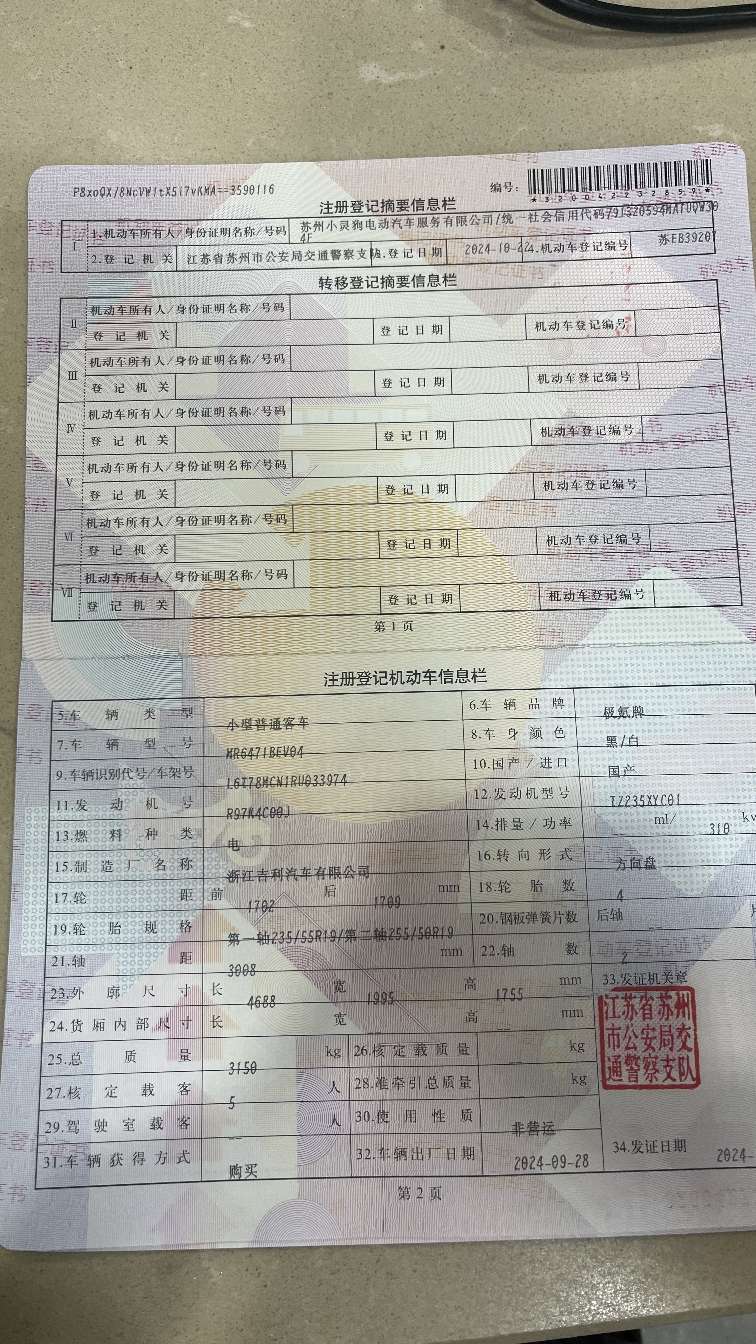 P8xoQX/8NcVW1tX5i7vKMA==3590116
编号:
*320042232859*
注册登记摘要信息栏
I 1.机动车所有人/身份证明名称/号码 苏州小灵狗电动汽车服务有限公司/统一社会信用代码/91320594MA1UQW30
4F
2.登记机关 江苏省苏州市公安局交通警察支队 3.登记日期 2024-10-22 4.机动车登记编号 苏EB39207
转移登记摘要信息栏
II 机动车所有人/身份证明名称/号码
登记机关 登记日期 机动车登记编号
III 机动车所有人/身份证明名称/号码
登记机关 登记日期 机动车登记编号
IV 机动车所有人/身份证明名称/号码
登记机关 登记日期 机动车登记编号
V 机动车所有人/身份证明名称/号码
登记机关 登记日期 机动车登记编号
VI 机动车所有人/身份证明名称/号码
登记机关 登记日期 机动车登记编号
VII 机动车所有人/身份证明名称/号码
登记机关 登记日期 机动车登记编号
第1页
注册登记机动车信息栏
5.车辆类型 小型普通客车 6.车辆品牌 极氪牌
7.车辆型号 MR6471BEV04 8.车身颜色 黑/白
9.车辆识别代号/车架号 L6T78MCN1RU033974 10.国产/进口 国产
11.发动机号 R97K4C00J 12.发动机型号 TZ235XYC01
13.燃料种类 电 14.排量/功率 ml/ 310 kw
15.制造厂名称 浙江吉利汽车有限公司 16.转向形式 方向盘
17.轮距 前 1702 后 1709 mm 18.轮胎数 4
19.轮胎规格 第一轴235/55R19/第二轴255/50R19 20.钢板弹簧片数 后轴 --
21.轴距 3008 mm 22.轴数 2
23.外廓尺寸 长 4688 宽 1995 高 1755 mm 33.发证机关章
江苏省苏州市公安局交通警察支队
24.货厢内部尺寸 长 宽 高 mm
25.总质量 3150 kg 26.核定载质量 kg
27.核定载客 5 人 28.准牵引总质量 kg
29.驾驶室载客 -- 人 30.使用性质 非营运
31.车辆获得方式 购买 32.车辆出厂日期 2024-09-28 34.发证日期 2024-
第2页